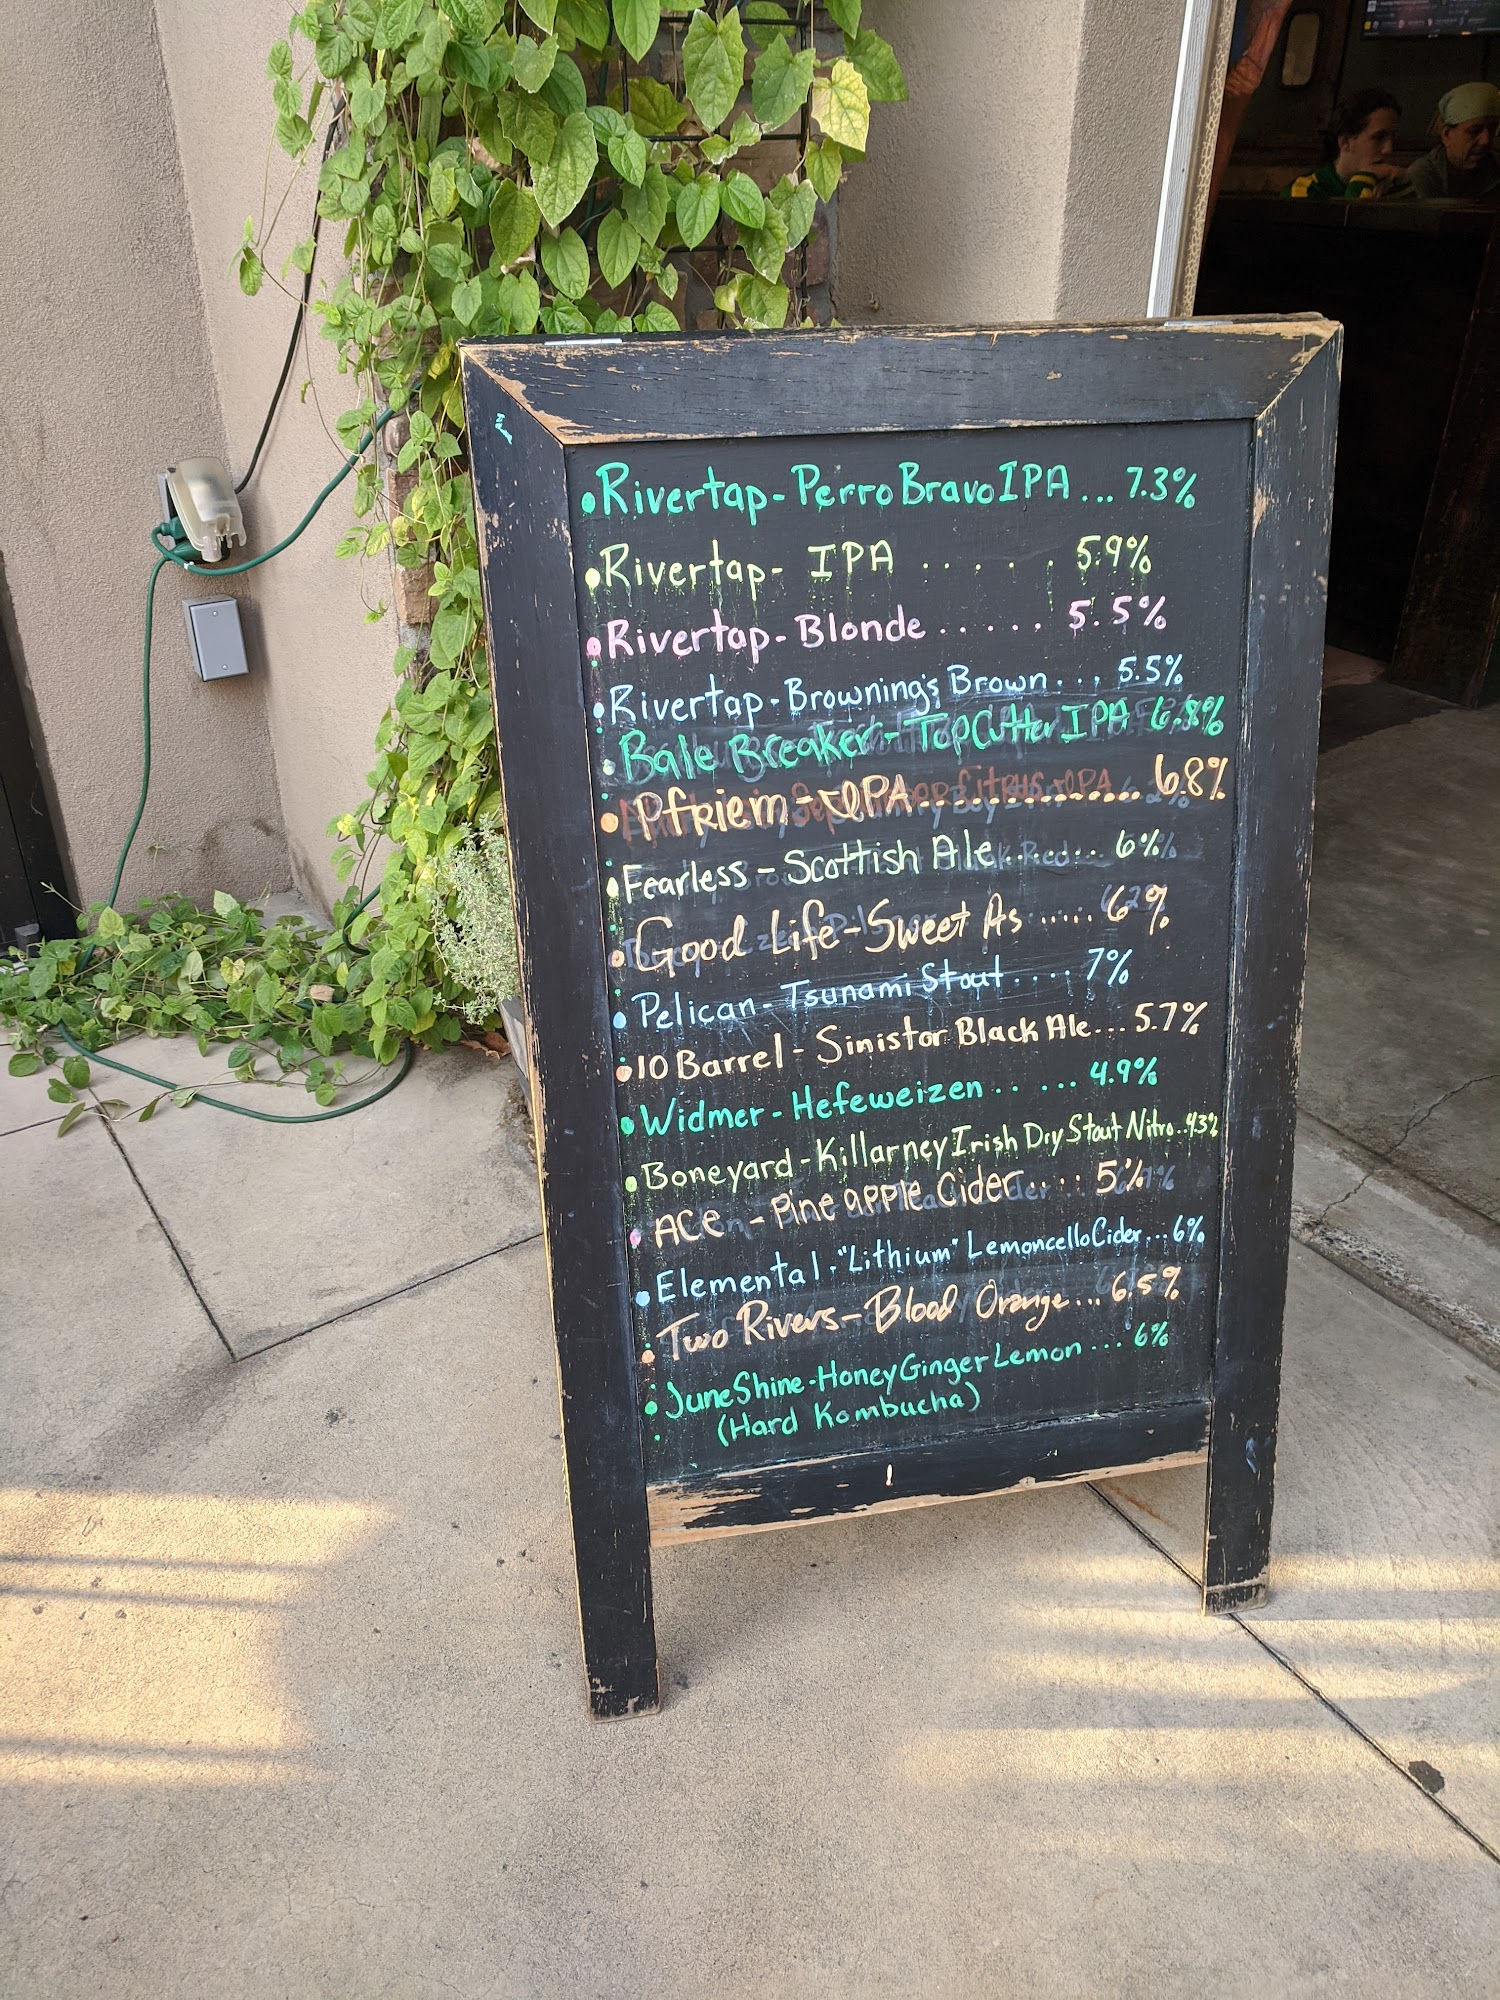 Rivertap - Perro Bravo IPA ... 7.3%
Rivertap - IPA ..... 5.9%
Rivertap - Blonde ..... 5.5%
Rivertap - Browning's Brown ... 5.5%
Bale Breaker - Top Cutter IPA 6.8%
Pfriem - IPA .............. 6.8%
Fearless - Scottish Ale ....... 6%
Good Life - Sweet As ..... 6%
Pelican - Tsunami Stout .... 7%
10 Barrel - Sinistor Black Ale ... 5.7%
Widmer - Hefeweizen ..... 4.9%
Boneyard - Killarney Irish Dry Stout Nitro .. 4.3%
ACE - Pineapple Cider .... 5%
Elemental - "Lithium" Lemoncello Cider ... 6%
Two Rivers - Blood Orange ... 6.5%
JuneShine - Honey Ginger Lemon ... 6%
(Hard Kombucha)